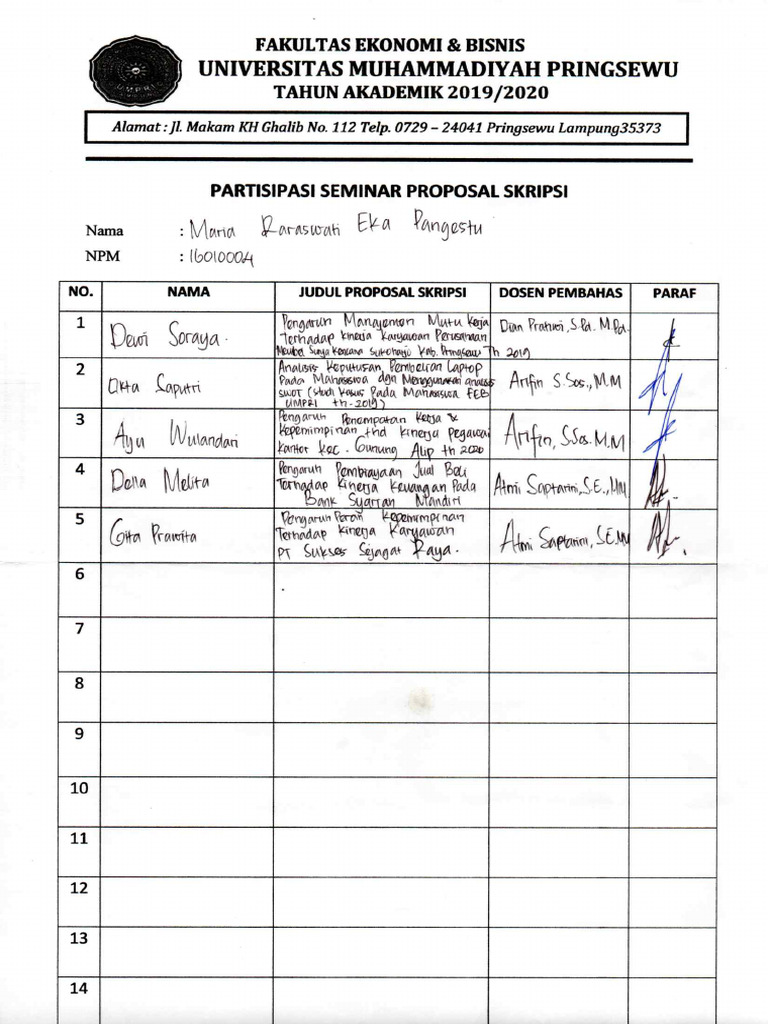 UMPRI
FAKULTAS EKONOMI & BISNIS
UNIVERSITAS MUHAMMADIYAH PRINGSEWU
TAHUN AKADEMIK 2019/2020
Alamat : Jl. Makam KH Ghalib No. 112 Telp. 0729 – 24041 Pringsewu Lampung35373
PARTISIPASI SEMINAR PROPOSAL SKRIPSI
Nama : Maria Raraswati Eka Pangestu
NPM : 16010004
NO. NAMA JUDUL PROPOSAL SKRIPSI DOSEN PEMBAHAS PARAF
1 Dewi Soraya. Pengaruh Manajemen Mutu Kerja Dian Pratiwi, S.Pd. M.Pd.
Terhadap Kinerja Karyawan Perusahaan
Meubel Surya Kencana Sukoharjo Kab. Pringsewu Th 2019
2 Okta Saputri Analisis Keputusan Pembelian Laptop Arifin S.Sos., M.M
Pada Mahasiswa dgn Menggunakan analisis
SWOT (Studi Kasus Pada Mahasiswa FEB
UMPRI th-2019)
3 Ayu Wulandari Pengaruh Penempatan Kerja & Arifin, S.Sos. M.M
Kepemimpinan thd kinerja pegawai
Kantor Kec. Gunung Alip th 2020
4 Della Melita Pengaruh Pembiayaan Jual Beli Atmi Saptarini, S.E., MM
Terhadap Kinerja Keuangan Pada
Bank Syariah Mandiri
5 Gita Prawita Pengaruh Peran Kepemimpinan Atmi Saptarini, S.E, MM
Terhadap Kinerja Karyawan
PT Sukses Sejagat Raya.
6
7
8
9
10
11
12
13
14